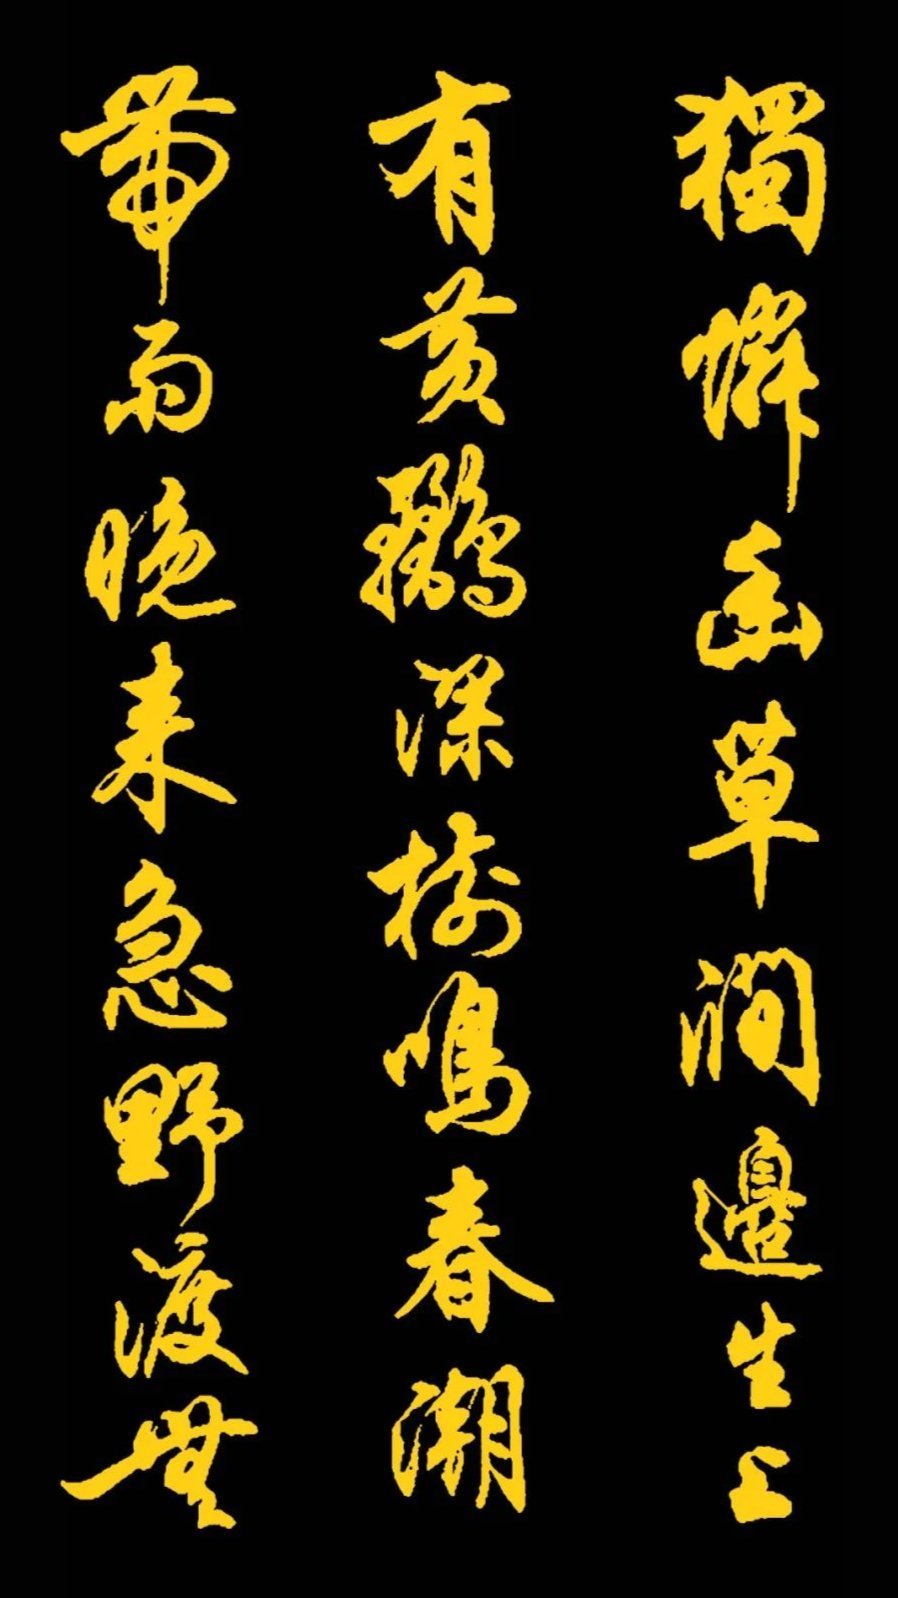 獨憐幽草澗邊生上
有黃鸝深樹鳴春潮
帶雨晚来急野渡無